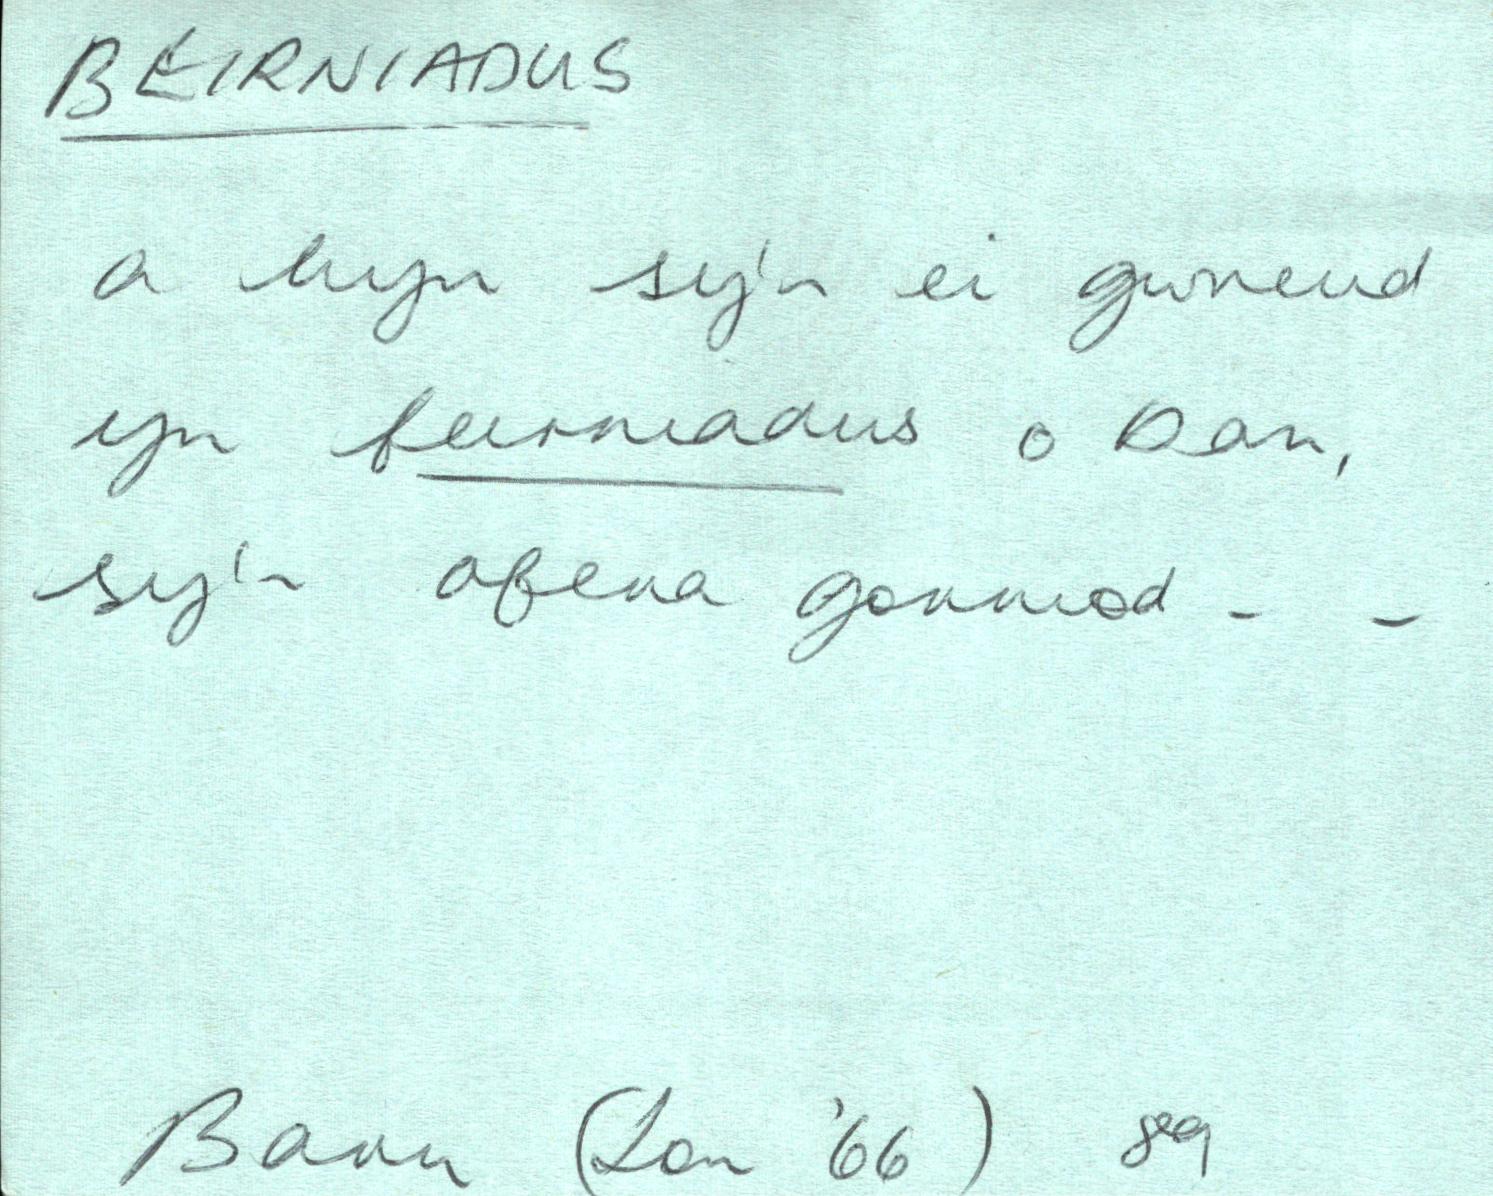 BEIRNIADUS
a hyn sy'n ei gwneud
yn feirniadus o Dan,
sy'n ofera gormod - -
Barn (Ion '66) 89